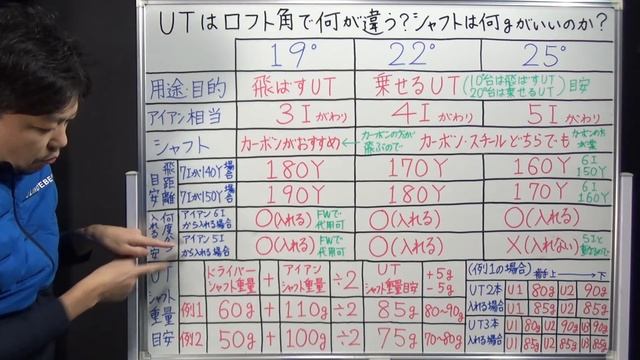 UTはロフト角で何が違う?シャフトは何gがいいのか?
19° 22° 25°
用途・目的 飛ばすUT 乗せるUT (10°台は飛ばすUT 20°台は乗せるUT)目安
アイアン相当 3Iがわり 4Iがわり 5Iがわり
シャフト カーボンがおすすめ ←カーボンの方が飛ぶので カーボン・スチールどちらでも カーボンの方が楽
飛距離目安 7Iが140Y場合 180Y 170Y 160Y 6I 150Y
7Iが150Y場合 190Y 180Y 170Y 6I 160Y
何度か入れる目安 アイアン6Iから入れる場合 ○(入れる) FWで代用可 ○(入れる) ○(入れる)
アイアン5Iから入れる場合 ○(入れる) FWで代用可 ○(入れる) ×(入れない) 5Iと
UTシャフト重量目安 ドライバーシャフト重量 + アイアンシャフト重量 ÷2 UTシャフト重量目安 +5g -5g
例1 60g + 110g ÷2 85g 80~90g
例2 50g + 100g ÷2 75g 70~80g
(例1の場合) 上 → 下
UT2本入れる場合 U1 80g U2 90g
U1 85g U2 85g
UT3本入れる場合 U1 80g U2 90g U3 90g
U1 85g U2 85g U3 85g